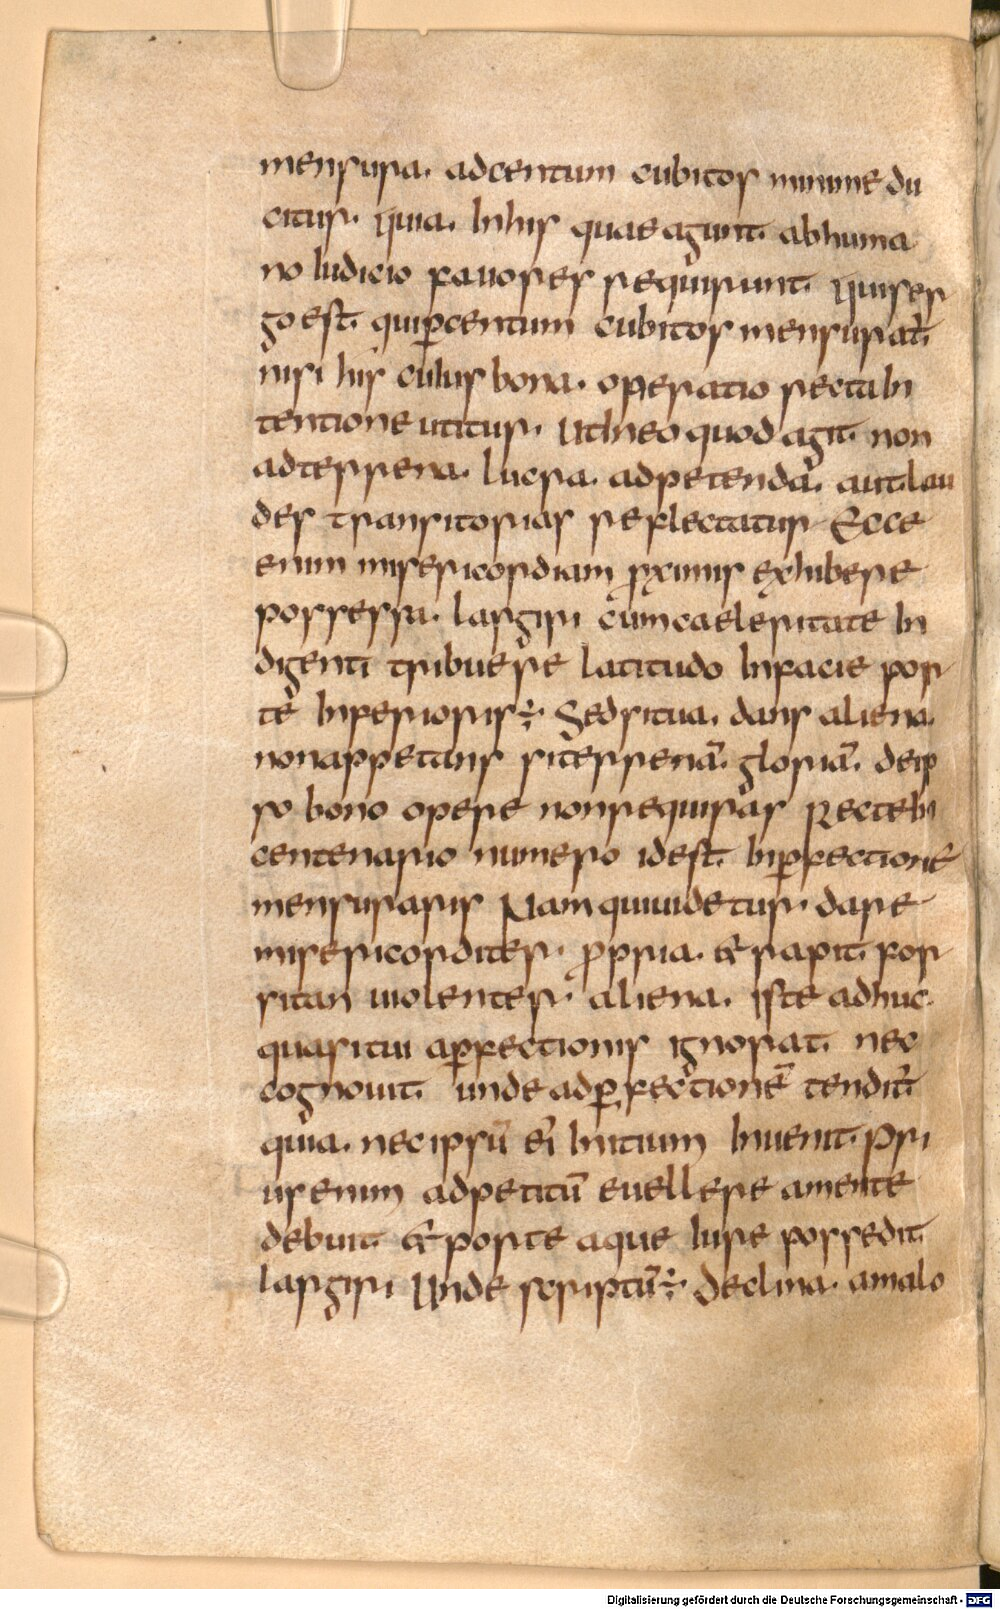 mensura. adcentum cubitos minime du
citur. Quia. Inhis quae agunt. abhuma
no Iudicio fauores requirunt. Quiser
go est. quip̱centum cubitos mensurat̅.
nisi his cuIus bona. operatio recta In
tentione utitur. Ut Ineo quod agit. non
adterrena. lucra. adpetenda̅. aut. lau
des transitorias reflectatur Ecce
enim misericordiam ꝓximis exhibere
possessa. largiri cumcaeleritate In
digenti tribuere latitudo Infacie por
te̅ Inferioris ÷. Sedsitua. dans aliena.
nonappetans siterrena̅. gloria̅. deip
so bono opere nonrequiras Recte In
centenario numero idest. Inp̱fectione̅
mensuraris Namquiuidetur. dare
misericorditer. ꝓpria. & rapit. for
sitan uiolenter. aliena. Iste adhuc.
quasitui ap̱fectionis ignorat. nec
cognouit. unde adp̱fectione̅ tendit̅.
quia. nec ipsu̅ ei̅ Initium Inuenit. Pri
us enim adpetitu̅ euellere amente
debuit. & porste aque Iure possedit.
largiri Unde scriptu̅ ÷. Declina. amalo
Digitalisierung gefördert durch die Deutsche Forschungsgemeinschaft - DFG